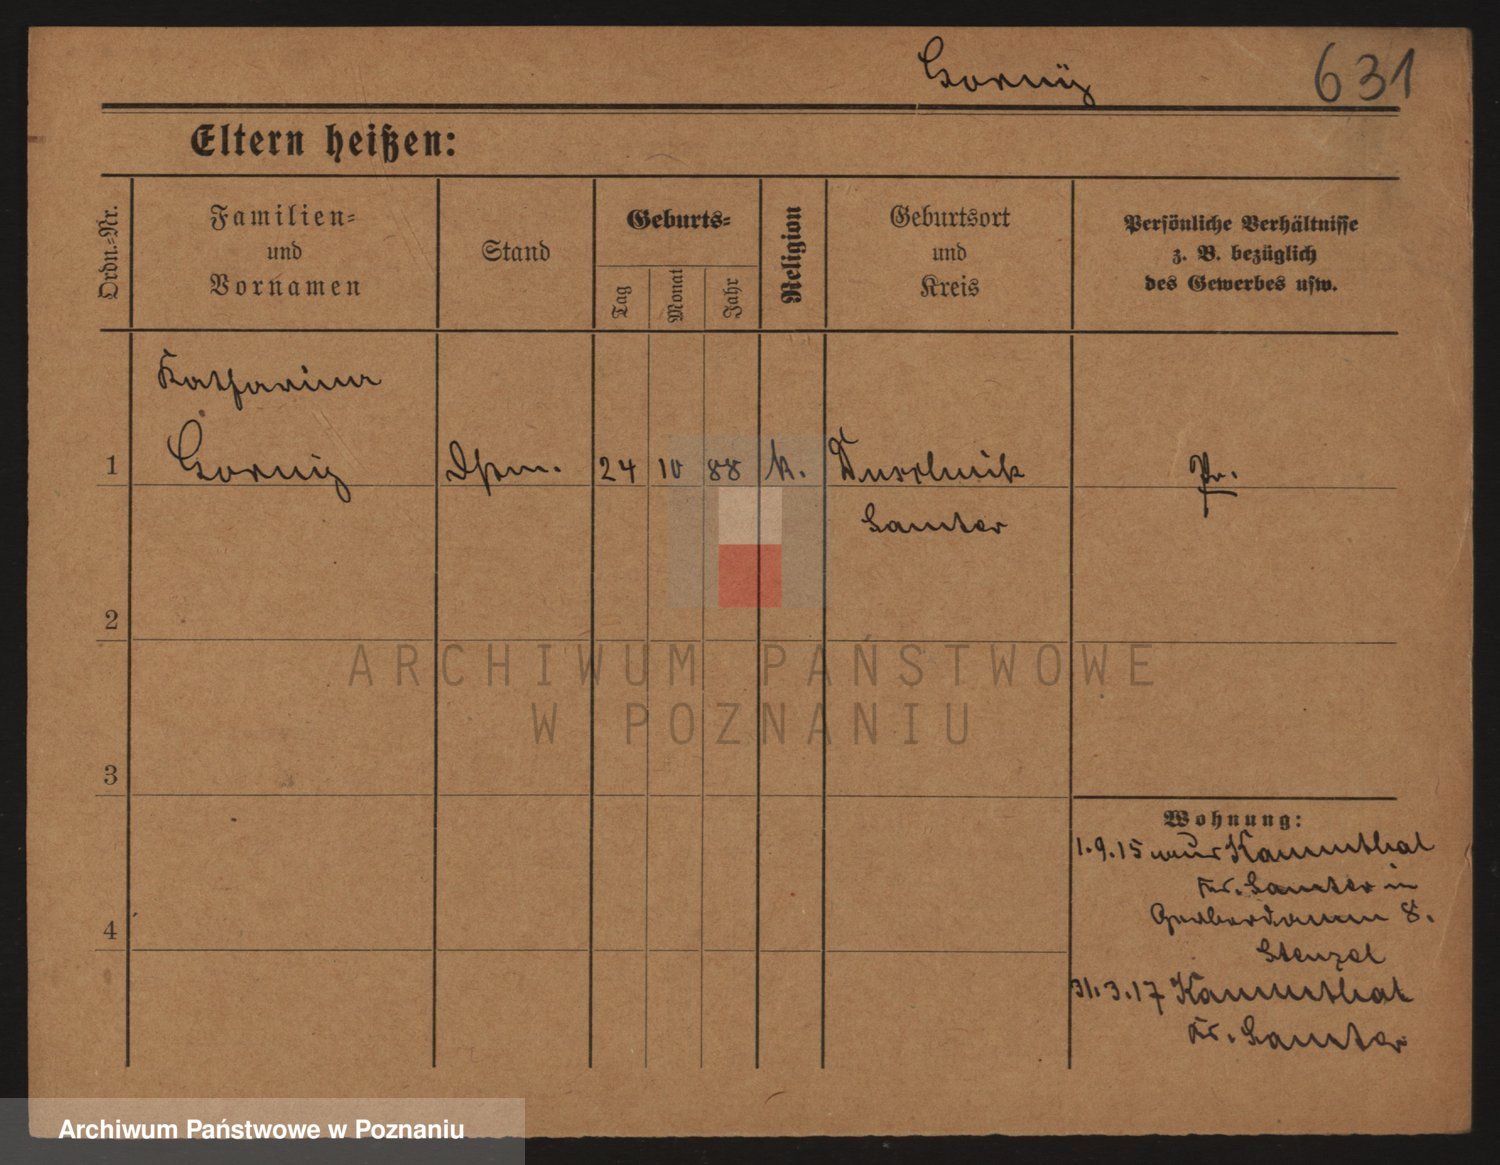 Gorny 631
Eltern heißen:
Ordn.-Nr.
Familien- und Vornamen
Stand
Geburts-
Tag
Monat
Jahr
Religion
Geburtsort und Kreis
Persönliche Verhältnisse z. B. bezüglich des Gewerbes usw.
Katharina
1 Gorny 24 10 88 k. Pr.
Samter
2
3
4
Wohnung:
1.9.15 aus Kammthal
Kr. Samter in
Gerberdamm 8.
Stenzel
31.3.17 Kammthal
Kr. Samter
ARCHIWUM PAŃSTWOWE
W POZNANIU
Archiwum Państwowe w Poznaniu